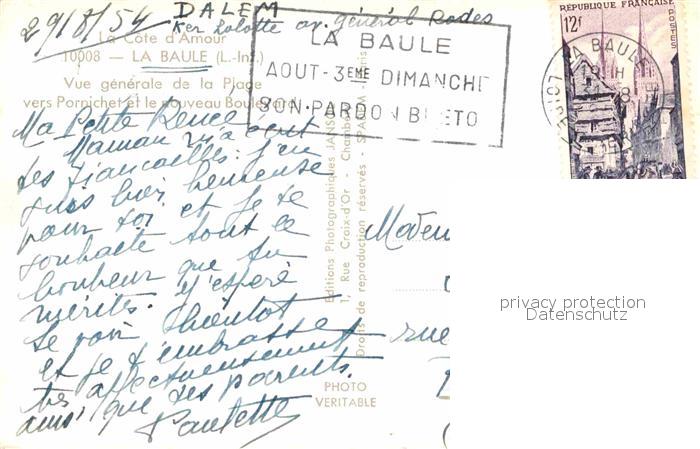 29/8/54 DALEM
Ker Lolotte av. général Rodes
La Côte d'Amour
10008 - LA BAULE (L.-Inf.)
Vue générale de la Plage
vers Pornichet et le nouveau Boulevard
LA BAULE
AOUT - 3EME DIMANCHE
SON PARDON B ETO
RÉPUBLIQUE FRANÇAISE
12F
POSTES
LA BAULE
18 H
LOIRE INFRE
Ma Petite Renée,
Maman m'a écrit
tes fiançailles: j'en
suis bien heureuse
pour toi et je te
souhaite tout le
bonheur que tu
mérites. J'espère
te voir bientôt
et je t'embrasse
très affectueusement
ainsi que tes parents.
Paulette
Editions Photographiques JANS
1, Rue Croix-d'Or - Chambé
Droits de reproduction réservés - SPA
PHOTO
VERITABLE
Madem
rue
privacy protection
Datenschutz